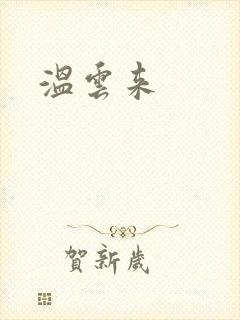 溫雲來
賀新歲